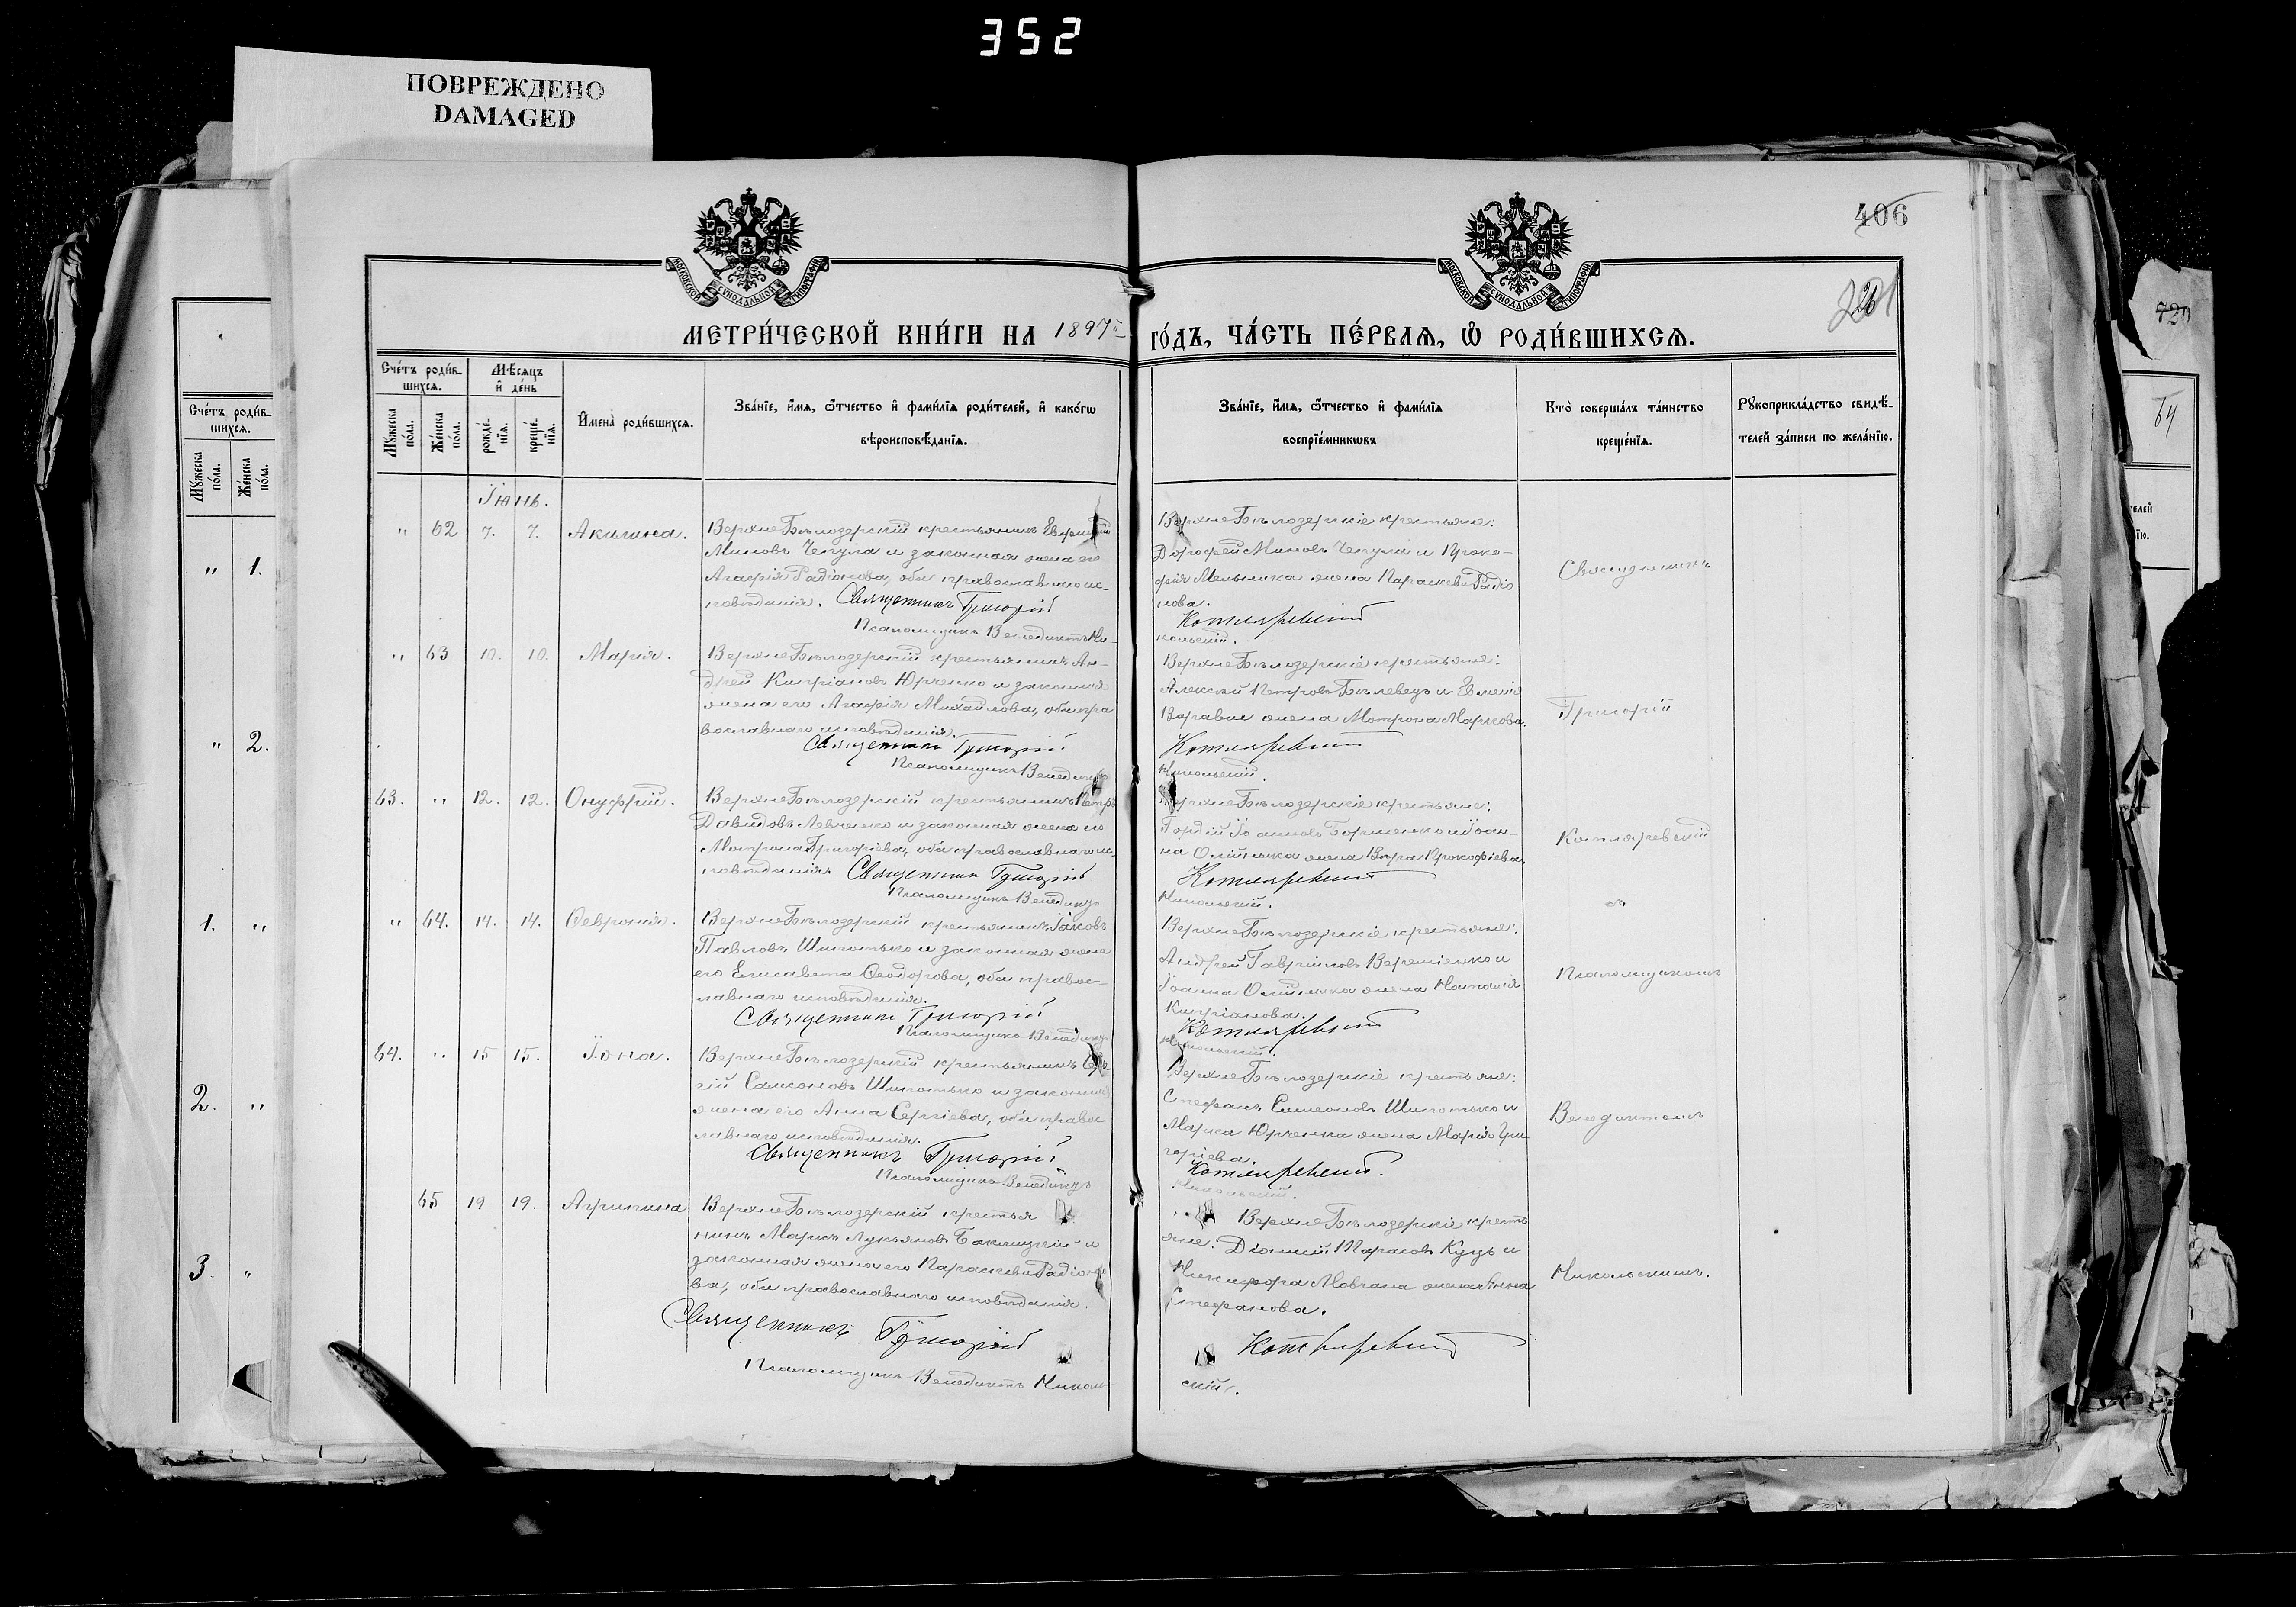 352
ПОВРЕЖДЕНО
DAMAGED
406
МОСКОВСКОЙ СУНОДАЛЬНОЙ ТИПОГРАФІИ
МОСКОВСКОЙ СУНОДАЛЬНОЙ ТИПОГРАФІИ
МЕТРИ́ЧЕСКОЙ КНИ́ГИ НА 1897й ГО́ДЪ, ЧА́СТЬ ПЕ́РВАѦ, Ѡ҆ РОДИ́ВШИХСѦ.
Сче́тъ роди́в-
шихсѧ.
Мѣ́сѧцъ
и҆ де́нь
Мꙋ́жеска по́ла.
Же́нска по́ла.
рожде́-
нїѧ.
креще́-
нїѧ.
И҆мена̀ роди́вшихсѧ.
Зва́нїе, и҆́мѧ, ѻ҆́тчество и҆ фами́лїѧ роди́телей, и҆ како́гѡ
вѣроисповѣ́данїѧ.
Зва́нїе, и҆́мѧ, ѻ҆́тчество и҆ фами́лїѧ
воспрїе́мникѡвъ
Кто̀ соверша́лъ та́инство
креще́нїѧ.
Рꙋкоприкла́дство свидѣ́-
телей за́писи по жела́нїю.
Іюнь.
" 62 7. 7. Акилина.
Верхне Бѣлозерскій крестьянинъ
Миновъ Чепула и законная жена его
Агафія Радіонова, оба православнаго ис-
повѣданія. Священникъ Григорій
Псаломщикъ Венедиктъ Ни-
Верхне Бѣлозерскіе крестьяне:
Дорофей Миновъ Чепула и Проко-
фія Мельника жена Параскева Радіо
нова.
Котляревскій
кольскій.
Священникъ
" 63 10. 10. Марія.
Верхне Бѣлозерскій крестьянинъ Ан-
дрей Кипріановъ Юрченко и законная
жена его Агафія Михайлова, оба пра
вославнаго исповѣданія.
Священникъ Григорій
Псаломщикъ Венедиктъ
Верхне Бѣлозерскіе крестьяне:
Алексѣй Петровъ Бѣлевецъ и
жена Мотрона Маркова.
Котляревскій
Никольскій.
Григорій
63. " 12. 12. Онуфрій.
Верхне Бѣлозерскій крестьянинъ Петръ
Давидовъ Левченко и законная жена его
Мотрона Григоріева, оба православнаго ис-
повѣданія. Священникъ Григорій
Псаломщикъ Венедиктъ
Верхне Бѣлозерскіе крестьяне:
Гордій Іоанновъ и Іоан-
на Олійника жена Вѣра Прокофіева.
Котляревскій
Никольскій.
Котляревскій
съ
" 64. 14. 14. Ѳевронія.
Верхне Бѣлозерскій крестьянинъ Іаковъ
Павловъ Шипотько и законная жена
его Елисавета Ѳеодорова, оба правос-
лавнаго исповѣданія.
Священникъ Григорій
Псаломщикъ Венедиктъ
Верхне Бѣлозерскіе крестьяне:
Андрей Гавріиловъ Веремѣенко и
Іоанна Олійника жена Наталія
Кипріанова.
Котляревскій
Никольскій.
Псаломщикомъ
64. " 15 15. Іона.
Верхне Бѣлозерскій крестьянинъ Сер-
гій Самсоновъ Шипотько и законная
жена его Анна Сергіева, оба правос
лавнаго исповѣданія.
Священникъ Григорій
Псаломщикъ Венедиктъ
Верхне Бѣлозерскіе крестьяне:
Стефанъ Симеоновъ Шипотько и
Марка Юрченка жена Марія Гри
горіева.
Котляревскій.
Никольскій.
Венедиктомъ
65 19 19. Агрипина
Верхне Бѣлозерскій крестья
нинъ Маркъ Лукьяновъ Баклицкій и
законная жена его Параскева Радіоно
ва, оба православнаго исповѣданія.
Священникъ Григорій
Псаломщикъ Венедиктъ Николь
Верхне Бѣлозерскіе кресть
яне: Діомидъ Тарасовъ Куцъ и
Никифора Мовчана жена Анна
Стефанова.
Котляревскій
скій.
Никольскимъ.
Сче́тъ роди́в-
шихсѧ.
Мꙋ́жеска по́ла.
Же́нска по́ла.
" 1.
" 2.
1. "
2. "
3. "
64
телей